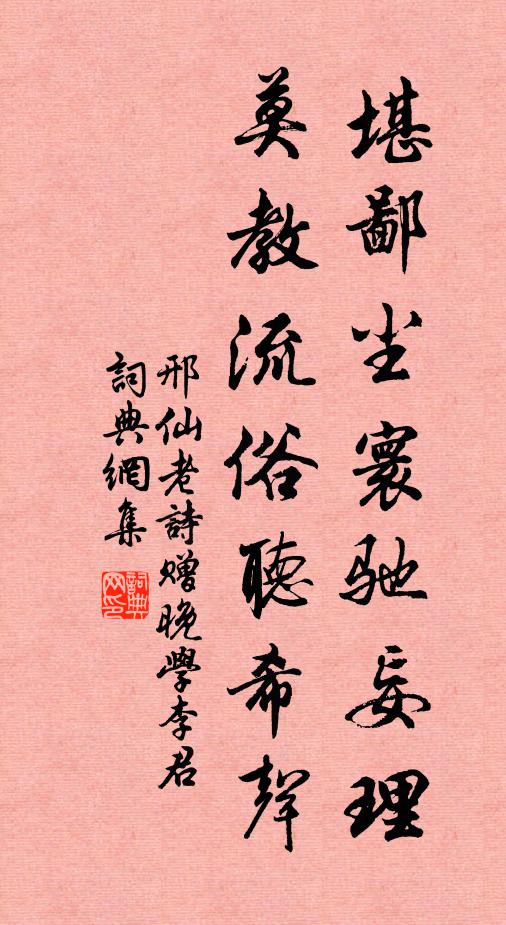 堪鄙尘寰驰妄理
莫教流俗聽希聲
邢仙老詩贈晚學李君
詞典網集
詞典网印